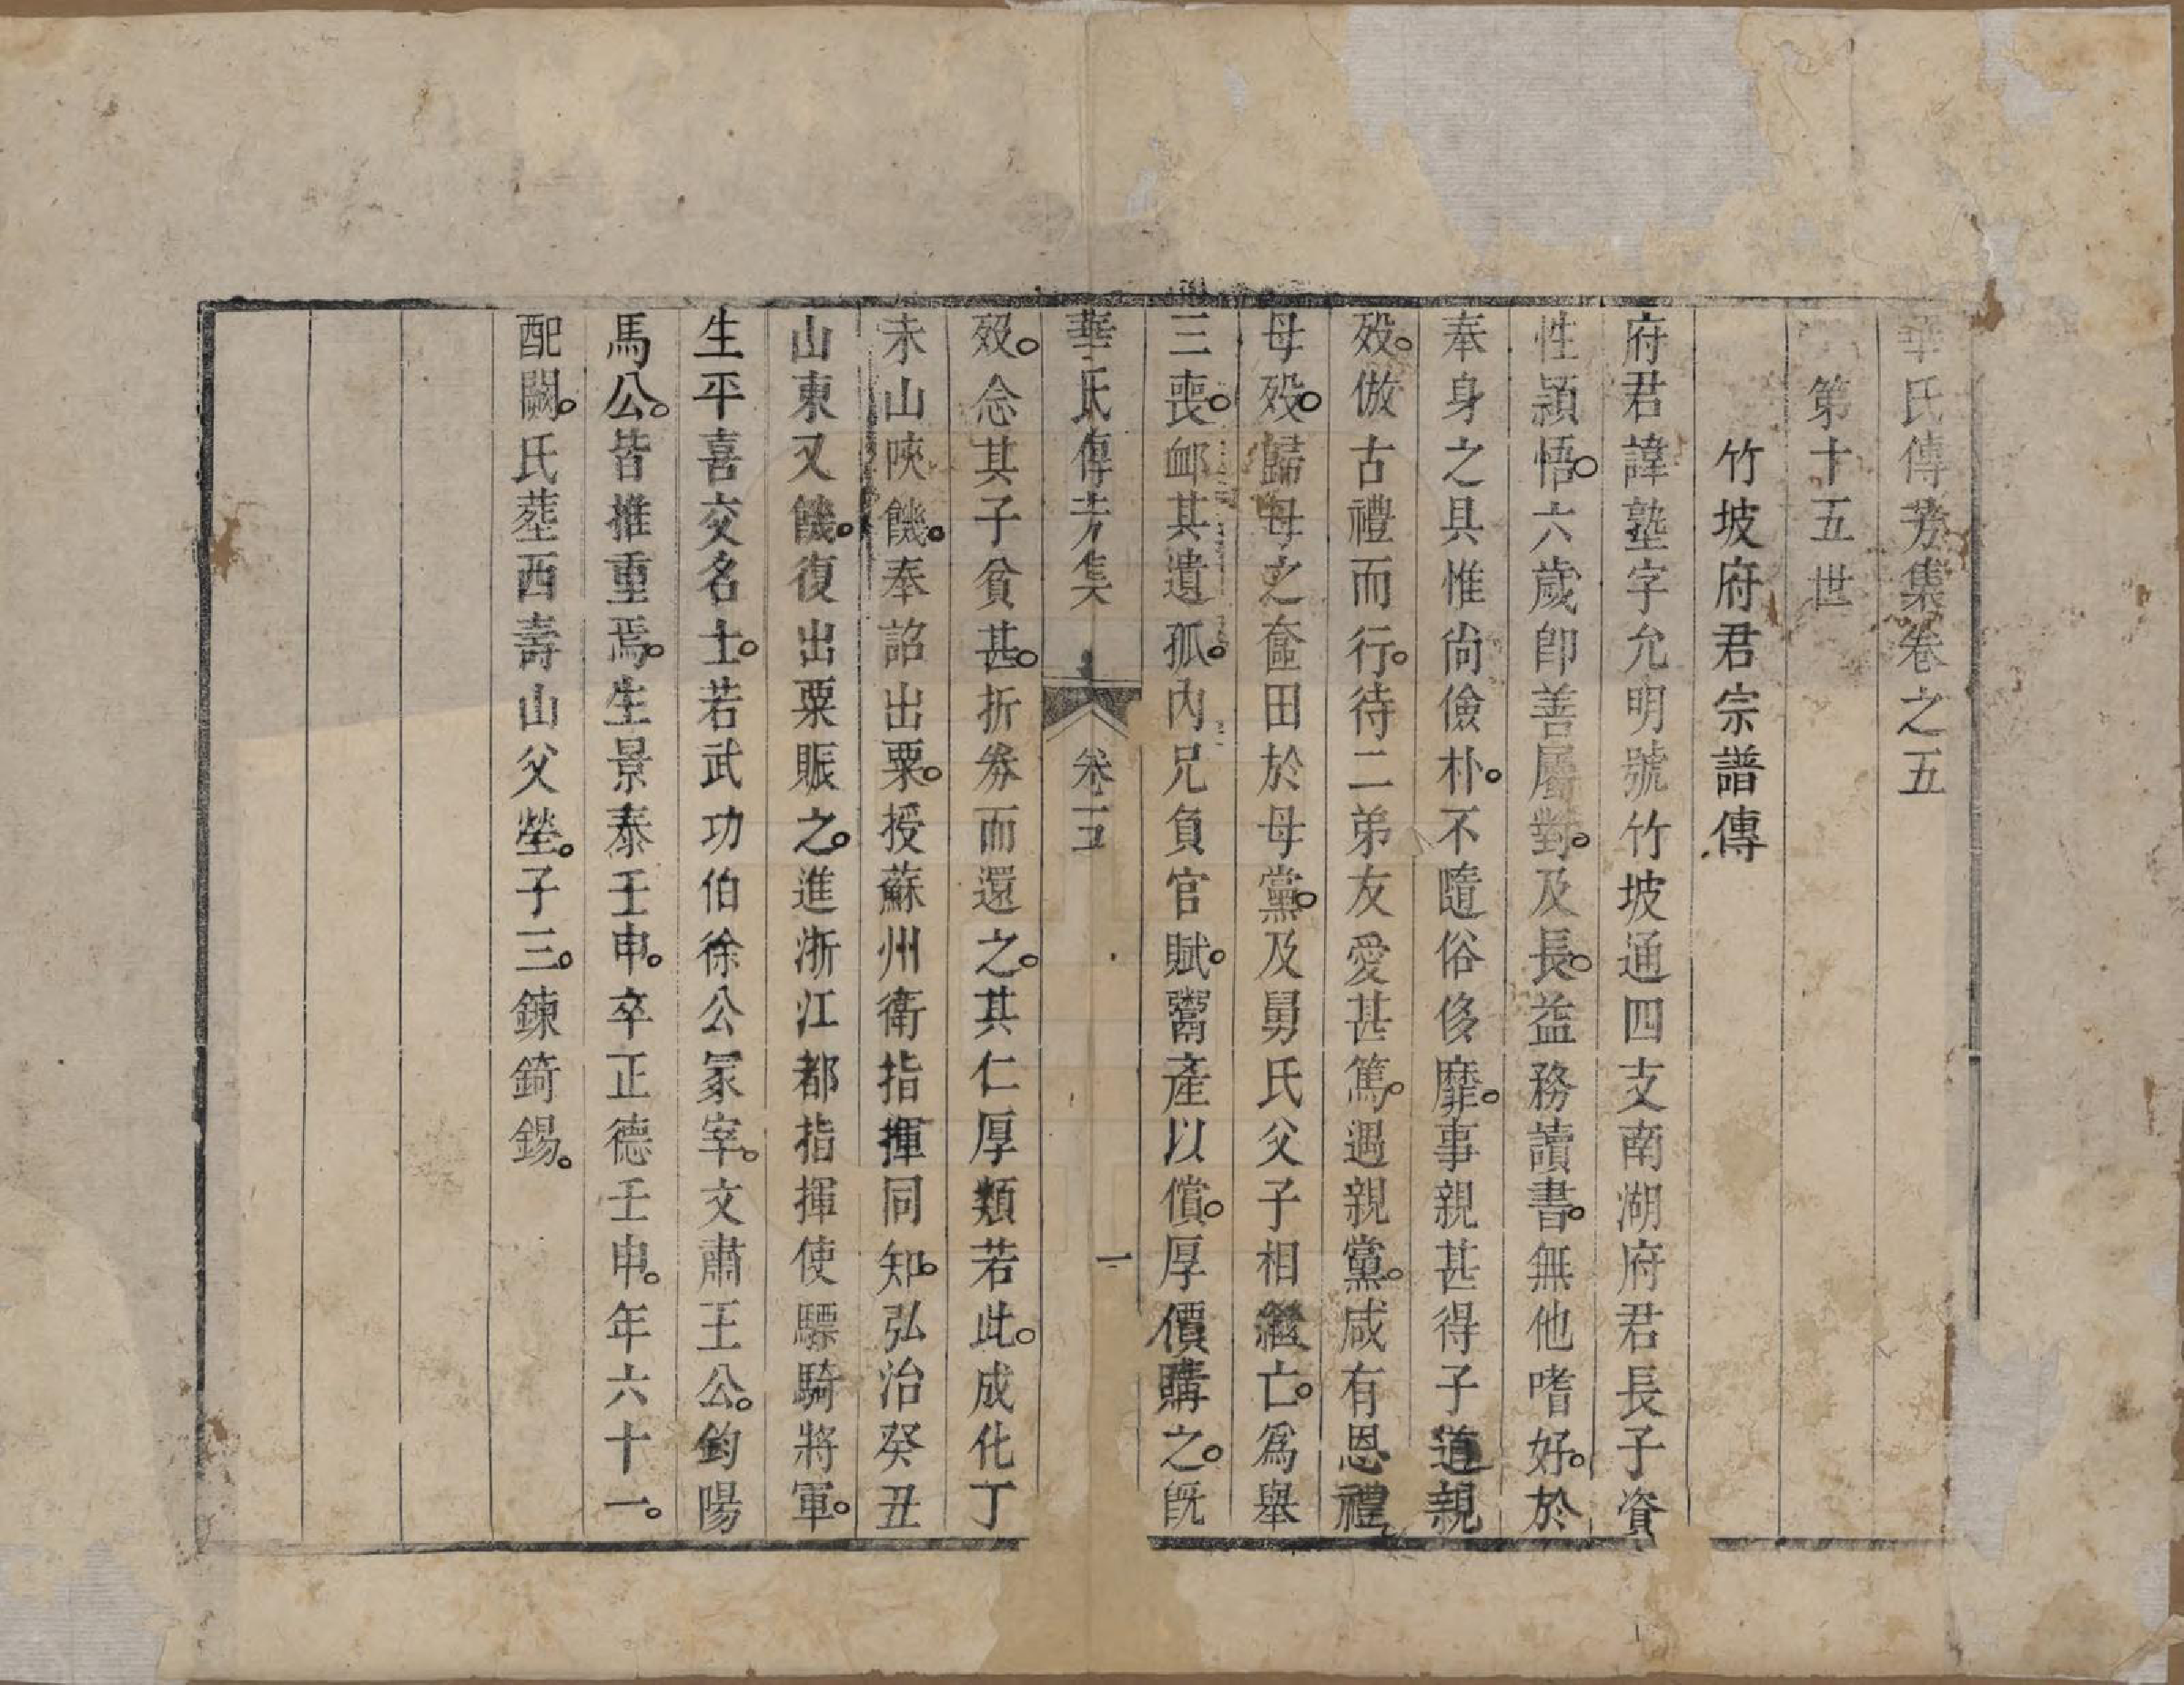 華氏傳芳集卷之五
第十五世
竹坡府君宗譜傳
府君諱塾字允明號竹坡通四支南湖府君長子資
性穎悟。六歲卽善屬對。及長。益務讀書。無他嗜好。於
奉身之具惟尚儉朴。不隨俗侈靡。事親甚得子道親
歿。倣古禮而行。待二弟友愛甚篤。遇親黨。咸有恩禮
母歿。歸母之奩田於母黨。及舅氏父子相繼亡。爲舉
三喪。卹其遺孤。內兄負官賦。鬻產以償。厚價購之。旣
華氏傳芳集
卷五
一
歿。念其子貧甚。折券而還之。其仁厚類若此。成化丁
未山陝饑。奉詔出粟。授蘇州衛指揮同知。弘治癸丑
山東又饑。復出粟賑之。進浙江都指揮使驃騎將軍。
生平喜交名士。若武功伯徐公冢宰。文肅王公。鈞陽
馬公。皆推重焉。生景泰壬申。卒正德壬申。年六十一。
配闕。氏葬西壽山父塋。子三。鍊錡錫。